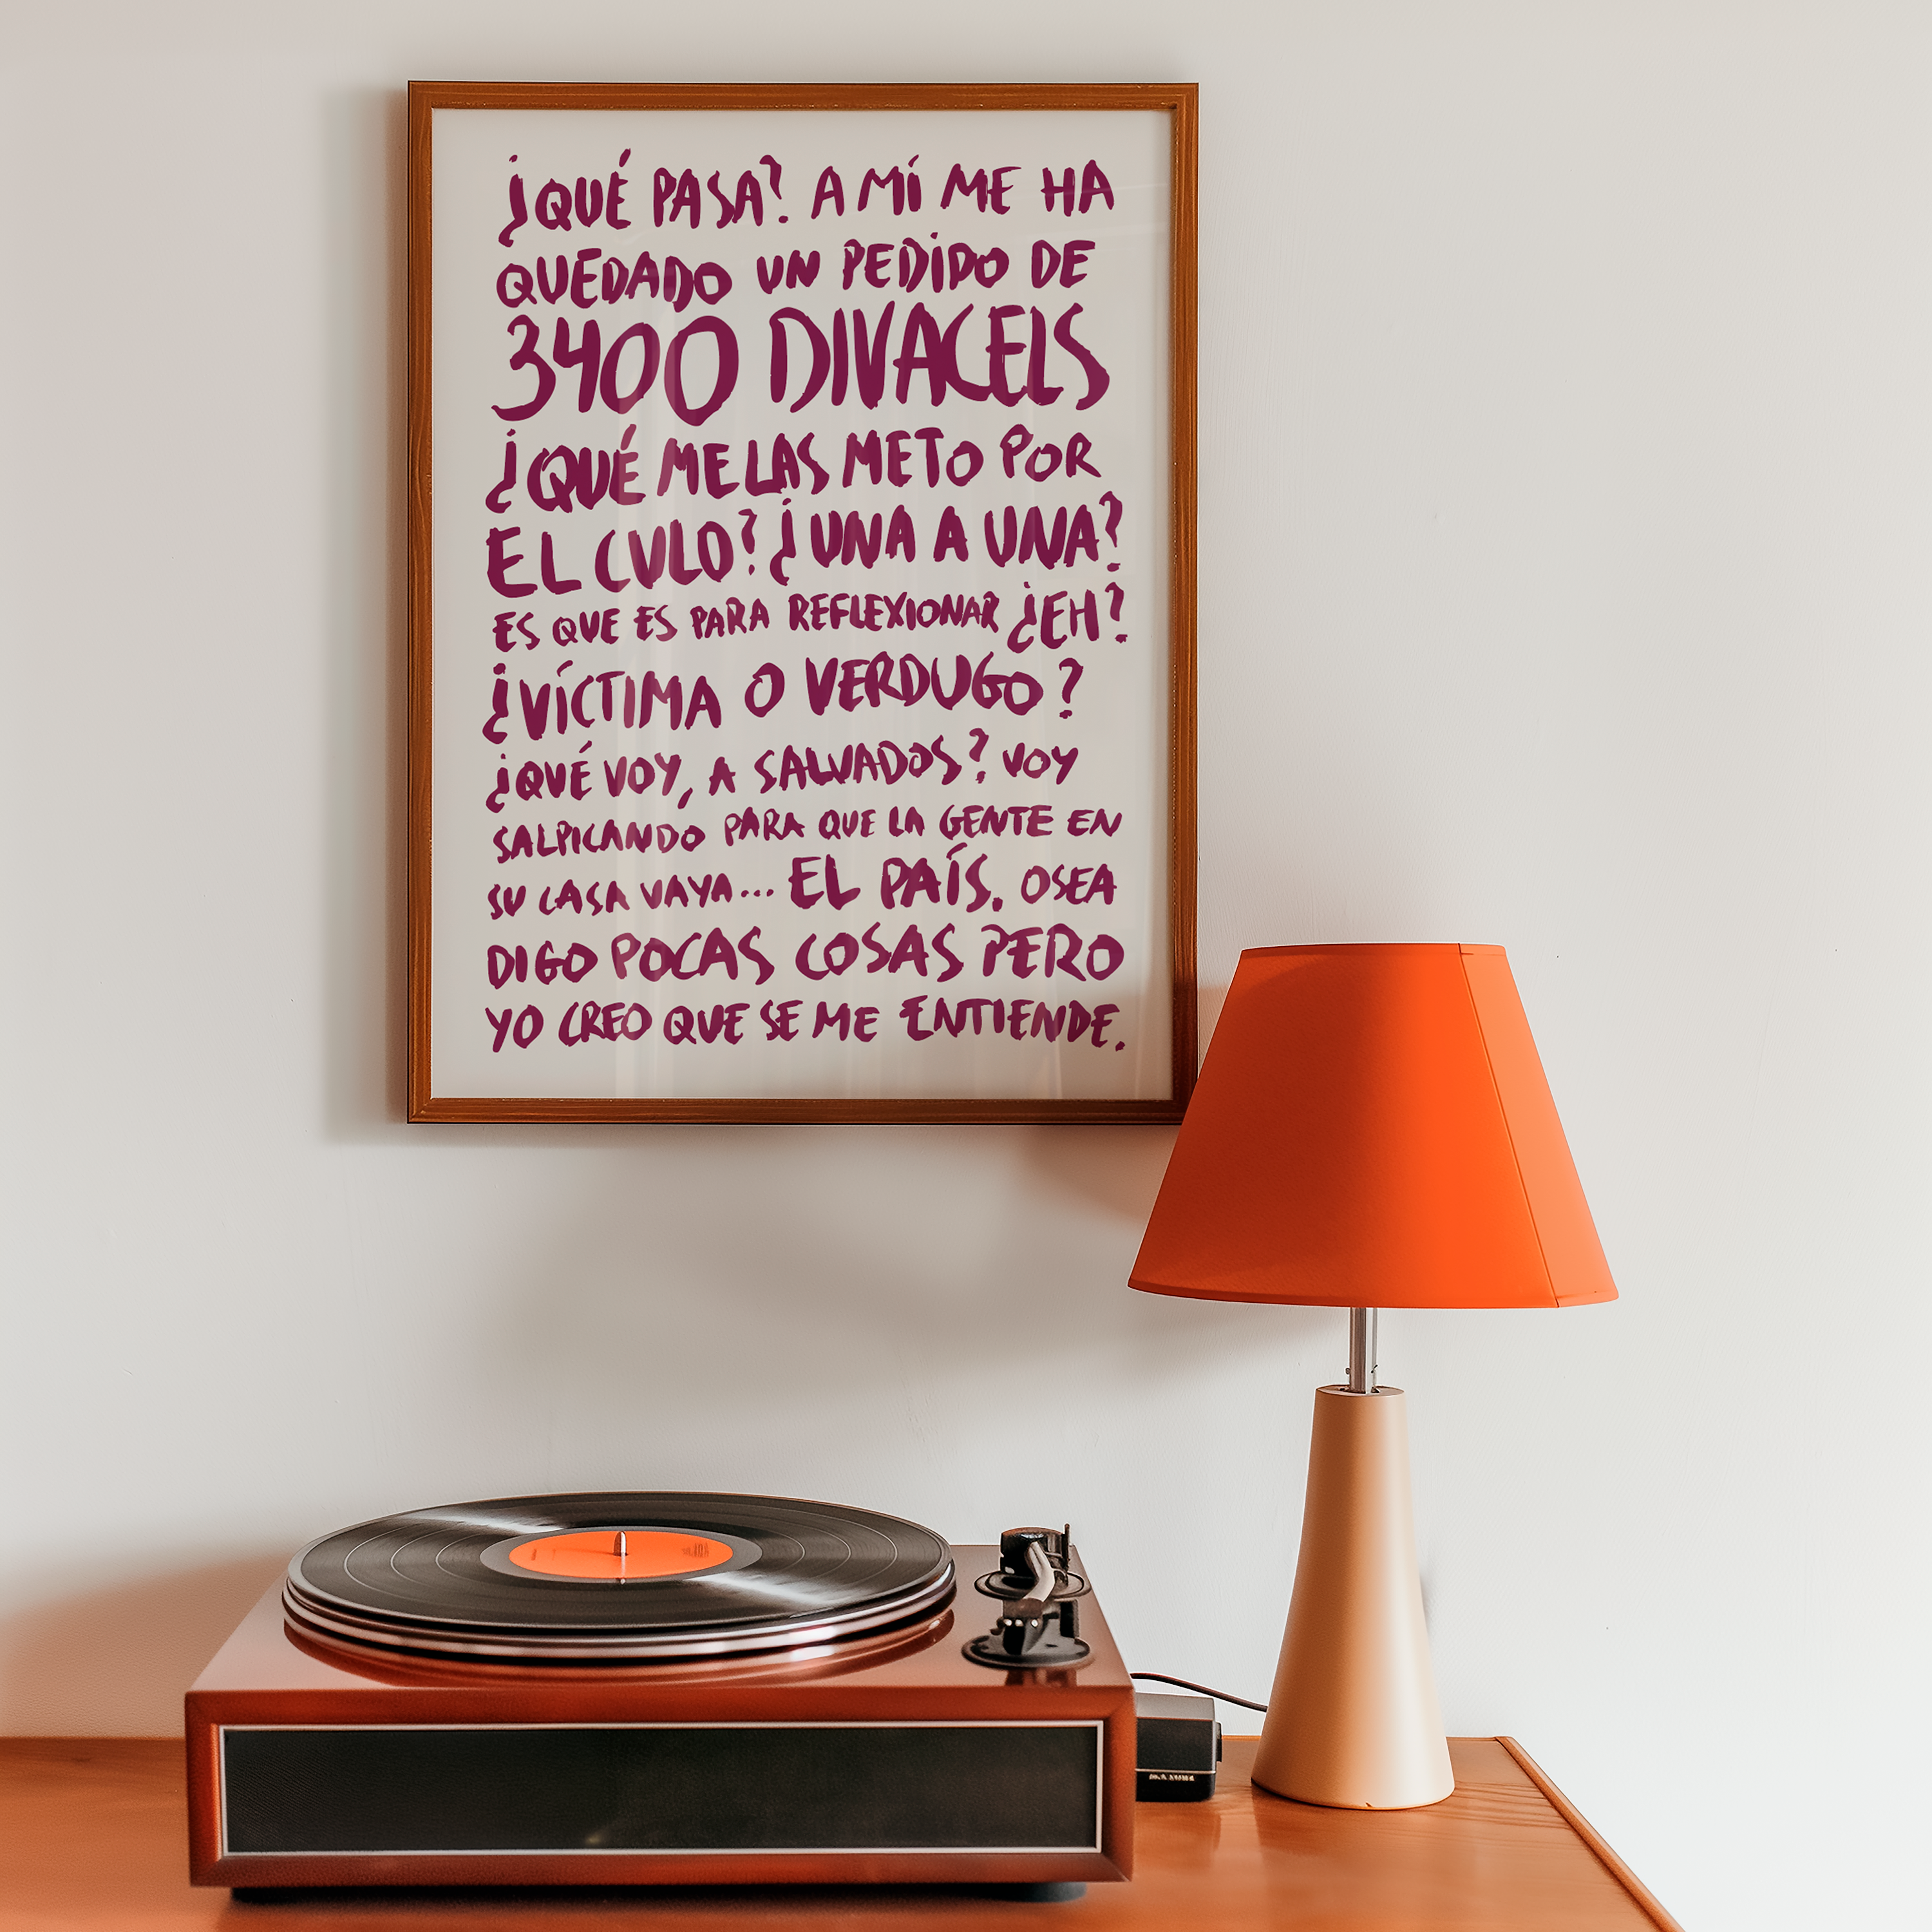 ¿QUÉ PASA? A MÍ ME HA
QUEDADO UN PEDIDO DE
3400 DIVACELS
¿QUÉ ME LAS METO POR
EL CULO? ¿UNA A UNA?
ES QUE ES PARA REFLEXIONAR ¿EH?
¿VÍCTIMA O VERDUGO?
¿QUÉ VOY, A SALVADOS? VOY
SALPICANDO PARA QUE LA GENTE EN
SU CASA VAYA... EL PAÍS. OSEA
DIGO POCAS COSAS PERO
YO CREO QUE SE ME ENTIENDE.